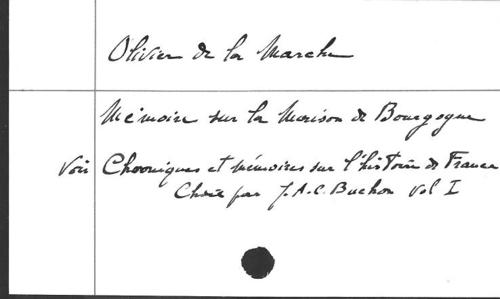 Olivier de la Marche
Mémoire sur la Maison de Bourgogne
Voir Chroniques et mémoires sur l'histoire de France
Choix par J.A.C. Buchon Vol I